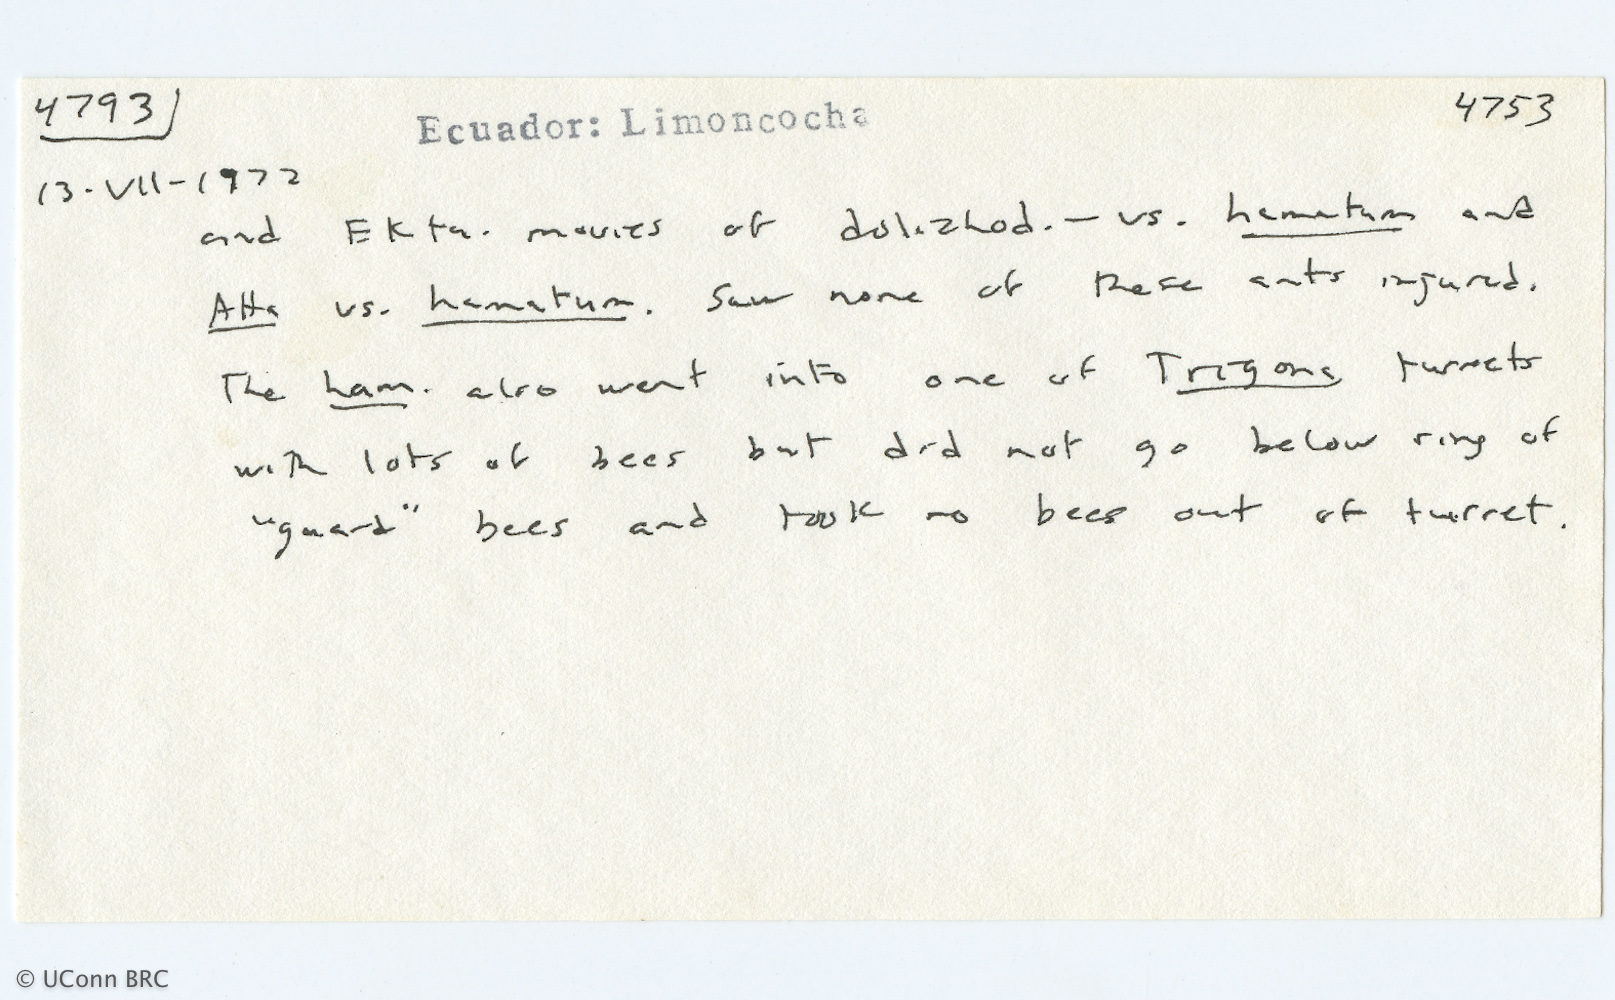 4793 Ecuador: Limoncocha 4753
13-VII-1972
and Ekta. movies of dolichod. — vs. hamatum and
Atta vs. hamatum. Saw none of these ants injured.
The ham. also went into one of Trigona turrets
with lots of bees but did not go below ring of
"guard" bees and took no bees out of turret.
© UConn BRC